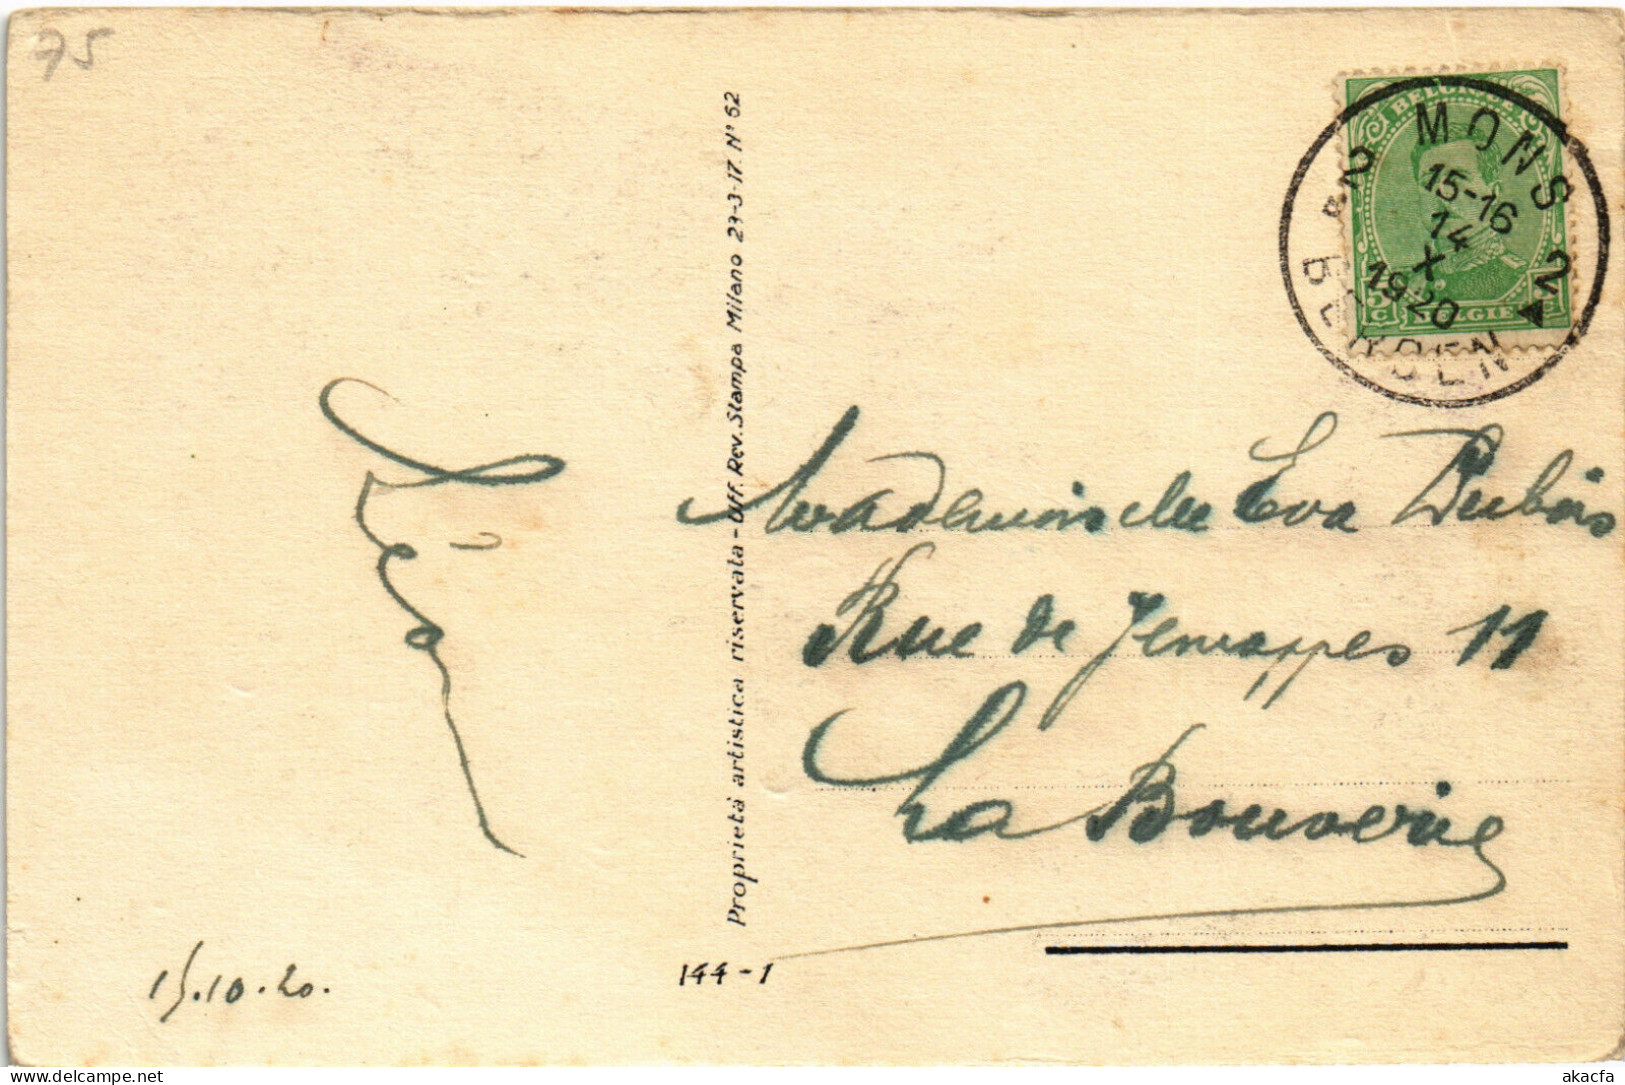 75
BELGIQUE
MONS
2 2
15-16
14
X
1920
BERGEN
5c
BELGIE
Proprietà artistica riservata - Uff. Rev. Stampa Milano 23-3-17 N° 62
Mademoiselle Eva Dubois
Rue de Jemappes 11
La Bouverie
15.10.20.
144-1
delcampe.net
akacfa